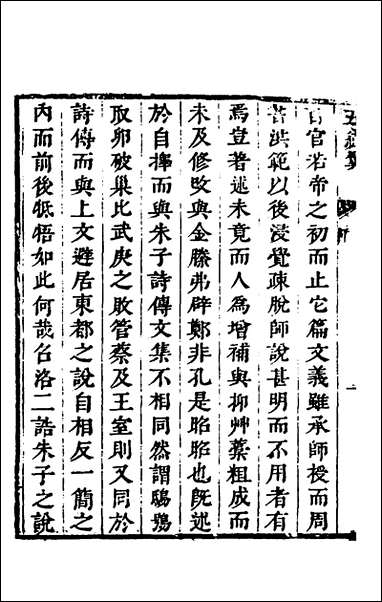 百官若帝之初而止它篇文義雖承師授而周
書洪範以後浸覺疎脫師說甚明而不用者有
焉豈著述未竟而人為增補與抑草藁粗成而
未及修攺與金縢弗辟鄭非孔是昭昭也旣述
於自撰而與朱子詩傳文集不相同然謂鴟鴞
取卵破巢比武庚之敗管蔡及王室則又同於
詩傳而與上文避居東都之說自相反一簡之
內而前後牴牾如此何哉召洛二誥朱子之說